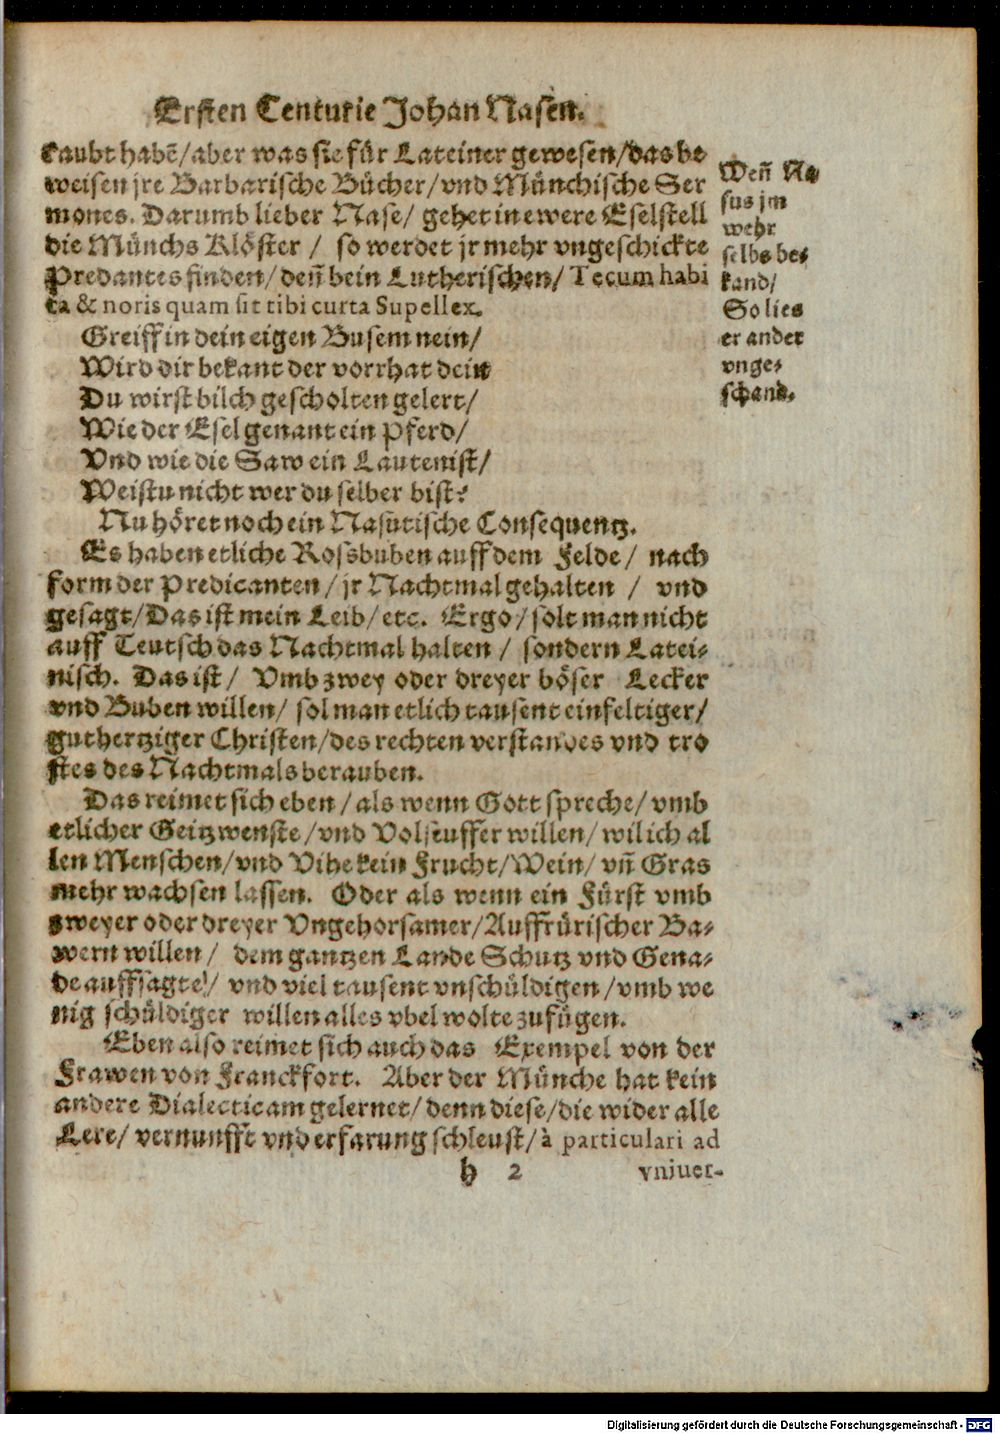 Ersten Centurie Johan Nasen.
kaubt habẽ/aber was sie für Lateiner gewesen/das be
weisen jre Barbarische Bücher/vnd Münchische Ser
mones. Darumb lieber Nase/ gehet in ewere Eselstell
die Münchs Klöster / so werdet jr mehr vngeschickte
Predantes finden/ deñ bein Lutherischen/ Tecum habi
ta & noris quam sit tibi curta Supellex.
Greiff in dein eigen Busem nein/
Wird dir bekant der vorrhat dein
Du wirst bilch gescholten gelert/
Wie der Esel genant ein Pferd/
Vnd wie die Saw ein Lautenist/
Weistu nicht wer du selber bist?
Nu höret noch ein Nasutische Consequentz.
Es haben etliche Rossbuben auff dem Felde / nach
form der Predicanten / jr Nachtmal gehalten / vnd
gesagt/Das ist mein Leib/ etc. Ergo/ solt man nicht
auff Teutsch das Nachtmal halten / sondern Latei-
nisch. Das ist / Vmb zwey oder dreyer böser Lecker
vnd Buben willen/ sol man etlich tausent einfeltiger/
guthertziger Christen/des rechten verstandes vnd tro
stes des Nachtmals berauben.
Das reimet sich eben / als wenn Gott spreche/ vmb
etlicher Geitzwenste /vnd Volseuffer willen/ wil ich al
len Menschen/vnd Vihe kein Frucht/Wein/ vñ Gras
mehr wachsen lassen. Oder als wenn ein Fürst vmb
zweyer oder dreyer Vngehorsamer/Auffrürischer Ba-
wern willen / dem gantzen Lande Schutz vnd Gena-
de auffsagte/ vnd viel tausent vnschüldigen /vmb we
nig schüldiger willen alles vbel wolte zufügen.
Eben also reimet sich auch das Exempel von der
Frawen von Franckfort. Aber der Münche hat kein
andere Dialecticam gelernet/ denn diese/die wider alle
Lere/ vernunfft vnd erfarung schleust/ à particulari ad
h 2 vniuer-
Weñ Na
sus jm
wehr
selbs be-
kand/
So lies
er ander
vnge-
schand.
Digitalisierung gefördert durch die Deutsche Forschungsgemeinschaft - DFG